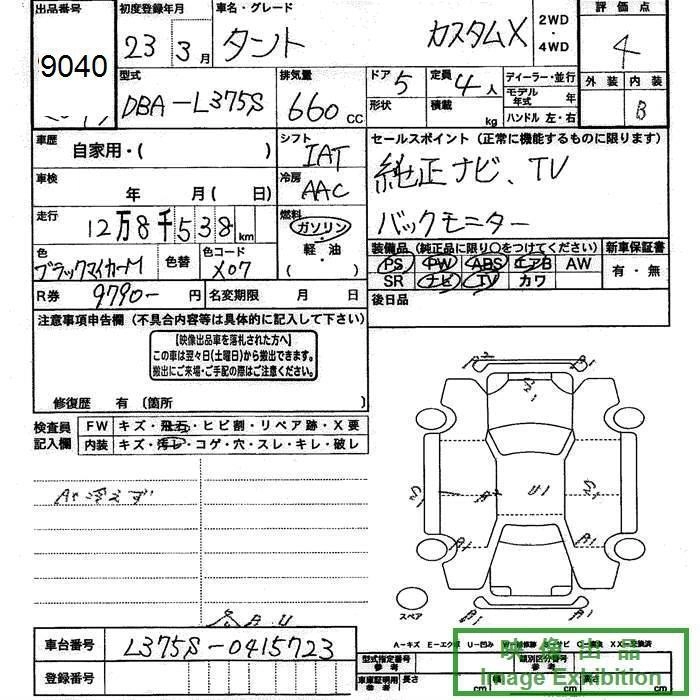 出品番号 初度登録年月 車名・グレード 2WD・4WD 評価点
9040 23年3月 タント カスタムX 4
型式 排気量 ドア 5 定員 4人 ディーラー・並行 外装 内装
DBA-L375S 660CC 形状 積載 kg モデル年式 年 B
ハンドル 左・右
車歴 自家用・( ) シフト IAT セールスポイント(正常に機能するものに限ります)
車検 年 月(日) 冷房 AAC 純正ナビ、TV
走行 12万8千538km 燃料 ガソリン・軽・油 ( ) バックモニター
色 ブラックマイカM 色替 色コード X07
装備品(純正品に限り○をつけてください) 新車保証書
PS PW ABS エアB AW 有・無
SR ナビ TV カワ
R券 9790-円 名変期限 月 日 後日品
注意事項申告欄(不具合内容等は具体的に記入して下さい)
【映像出品車を落札された方へ】
この車は翌々日(土曜日)から搬出できます。
搬出にご来場・ご手配の際はご注意ください。
修復歴 有〔箇所 〕
検査員記入欄 FW キズ・飛石・ヒビ割・リペア跡・X要
内装 キズ・汚レ・コゲ・穴・スレ・キレ・破レ
A/C冷えず
B2 B1
U1
S1 A2 S1
A1 A1
スペア
車台番号 L375S-0415723
A-キズ E-エクボ U-凹み
登録番号
型式指定番号 参考 類別区分番号 参考
車庫証明用 参考 長さ cm cm cm
映像出品
Image Exhibition